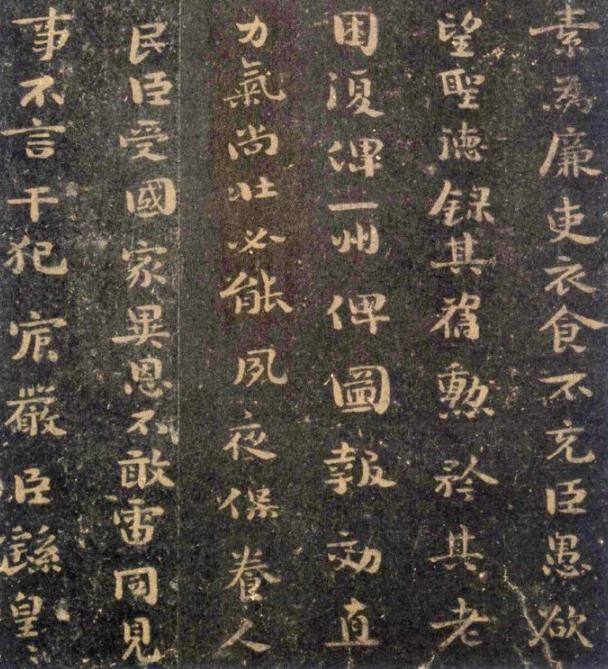 素為廉吏衣食不充臣愚欲
望聖德録其舊勲矜其老
困復俾一州俾圖報効直
力氣尚壯必能夙夜保養人
民臣受國家異恩不敢雷同見
事不言干犯宸嚴臣繇皇〻